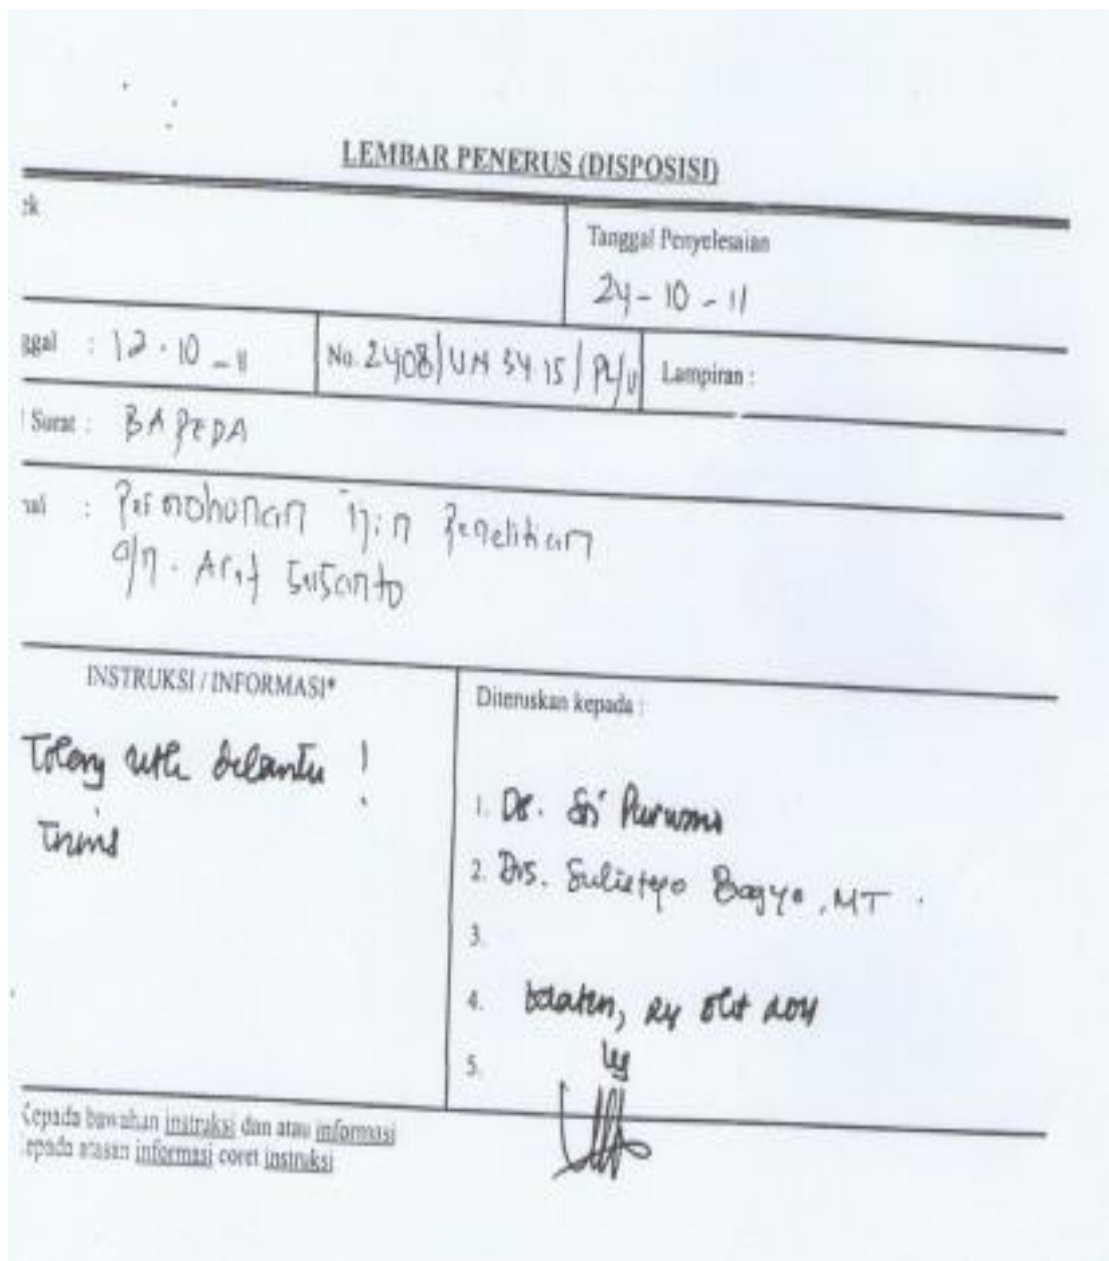 LEMBAR PENERUS (DISPOSISI)
Tanggal Penyelesaian
24-10-11
ggal : 12.10-11 No. 2408/UN 34 15/PL/11 Lampiran :
Surat : BAPEDA
: Permohonan ijin Penelitian
a/n. Arif Susanto
INSTRUKSI / INFORMASI*
Tolong utk dibantu !
Trims
Diteruskan kepada :
1. Dr. Sri Purwono
2. Drs. Sulistyo Bagyo, MT.
3.
4. 24 Okt 2011
5.
Kepada bawahan instruksi dan atau informasi
epada atasan informasi coret instruksi